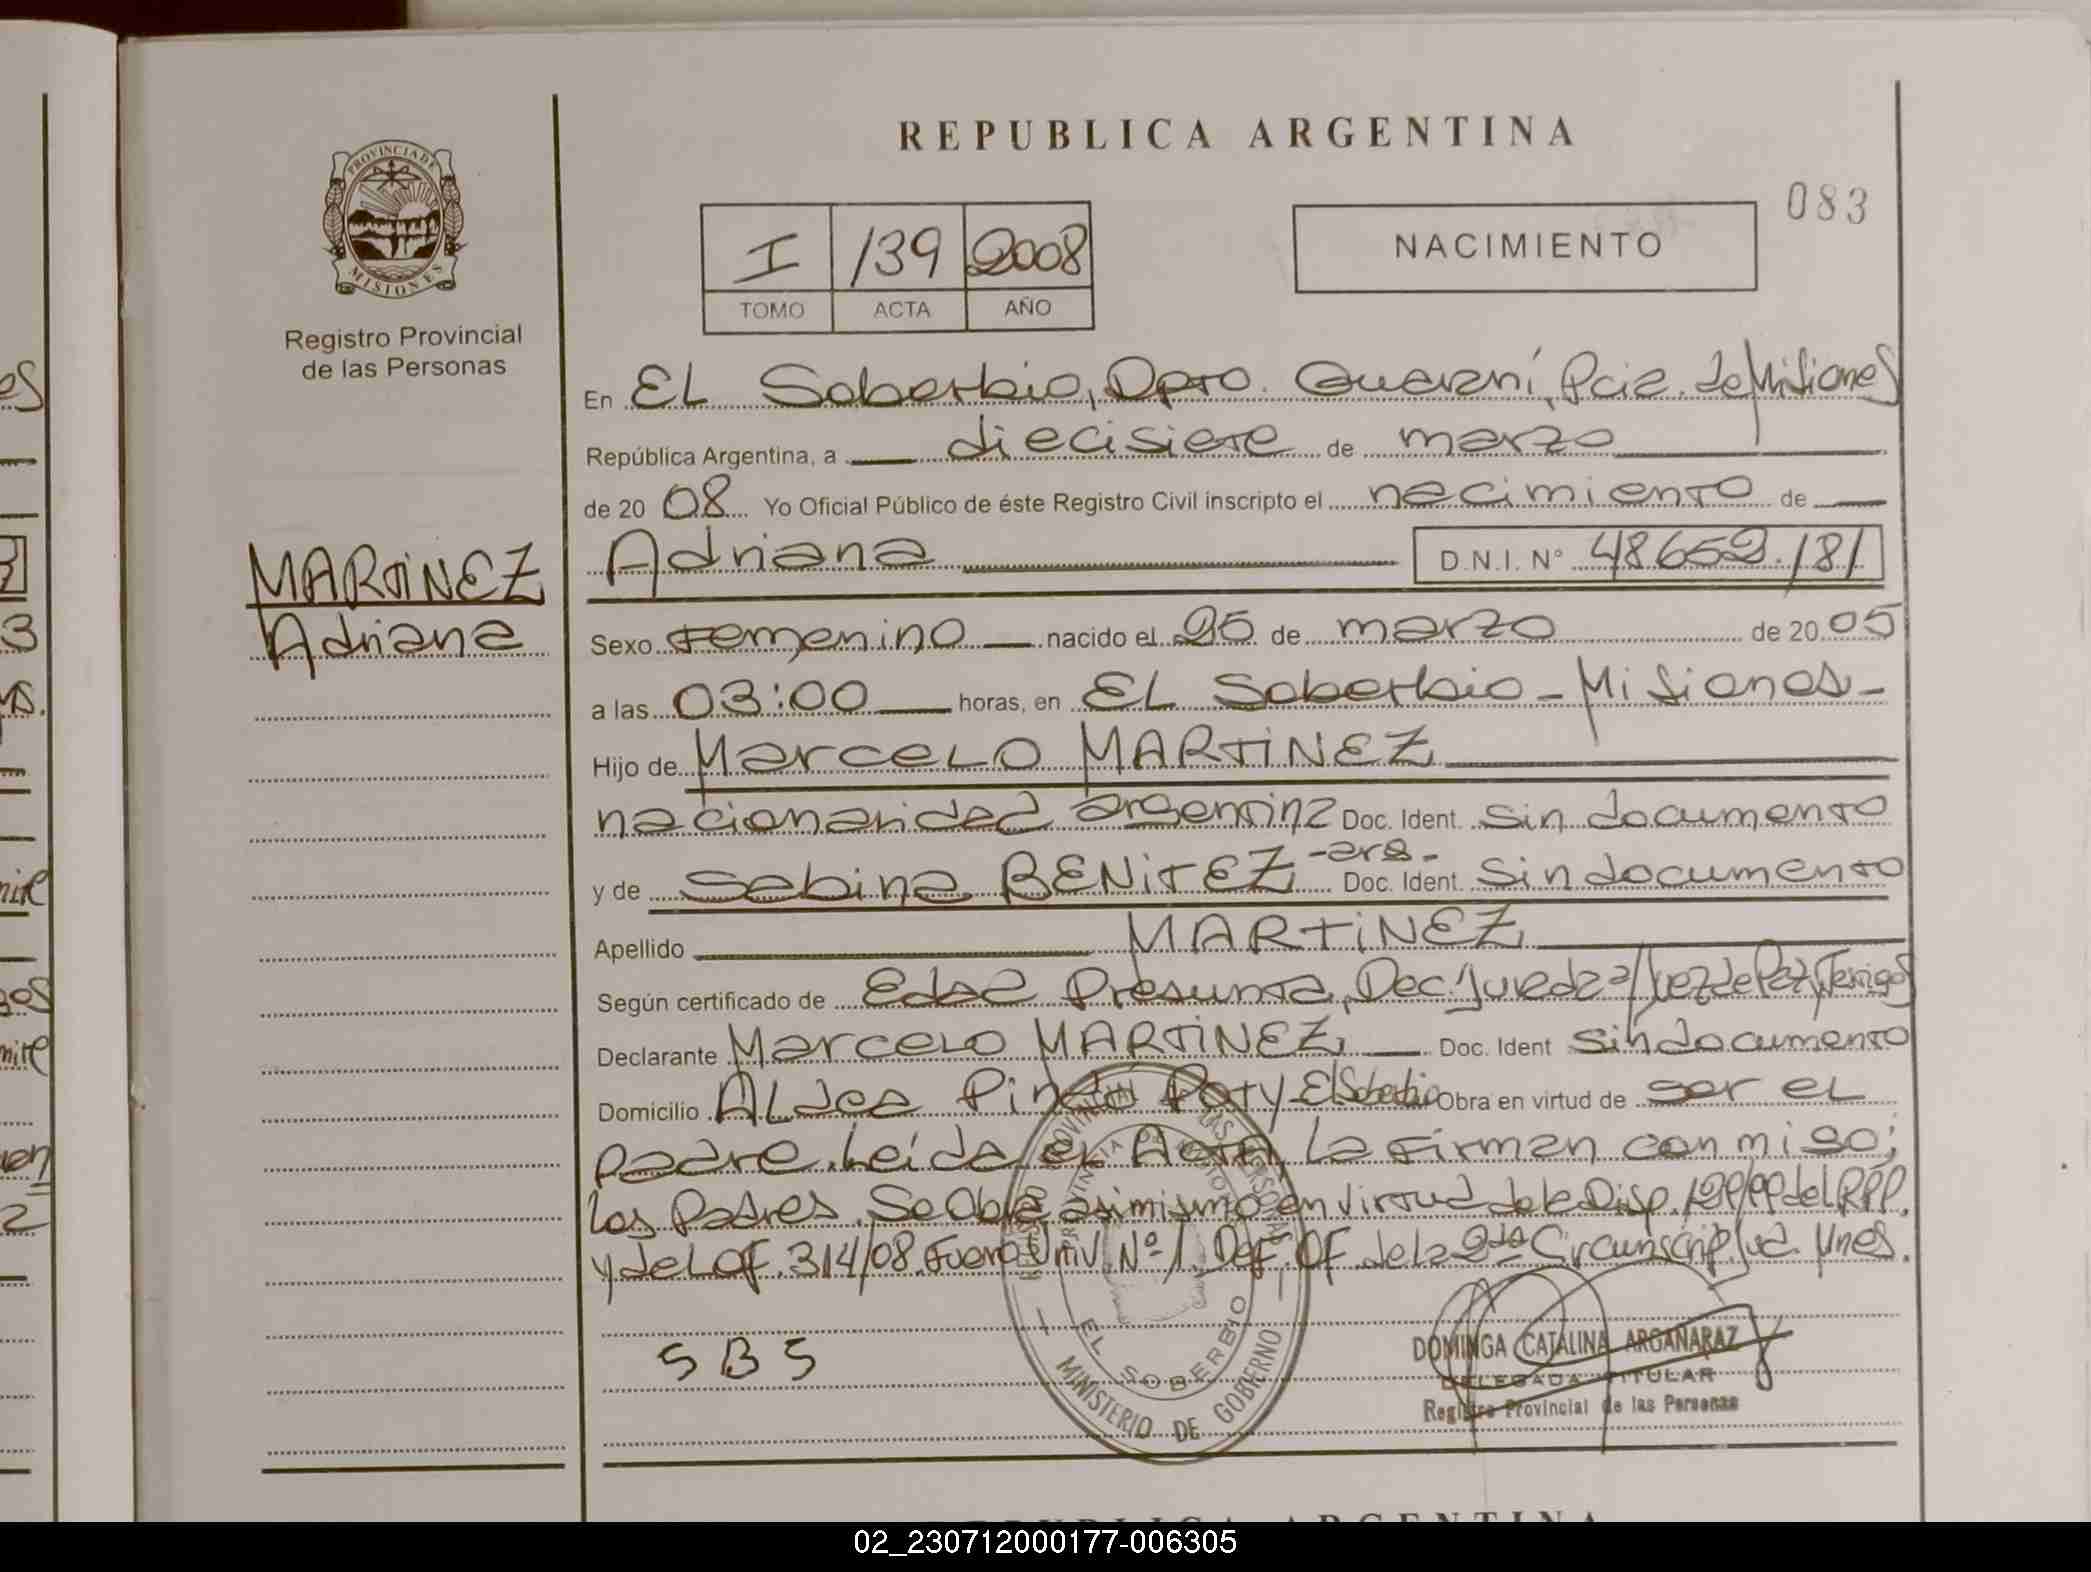 REPUBLICA ARGENTINA
083
PROVINCIA DE MISIONES
Registro Provincial
de las Personas
I /39 2008
TOMO ACTA AÑO
NACIMIENTO
En EL Soberbio, Dpto. Guaraní, Pcia. de Misiones
República Argentina, a diecisiete de marzo
de 20 08 Yo Oficial Público de éste Registro Civil inscripto el nacimiento de
Adriana D.N.I. Nº 48652.181
MARTINEZ
Adriana
Sexo Femenino nacido el 25 de marzo de 20 05
a las 03:00 horas, en EL Soberbio - Misiones -
Hijo de Marcelo MARTINEZ
nacionalidad argentina Doc. Ident. Sin documento
y de Sabina BENITEZ -arg- Doc. Ident. Sin documento
Apellido MARTINEZ
Según certificado de Edad Presunta, Dec. Jurada a/Juez de Paz y Testigos
Declarante Marcelo MARTINEZ Doc. Ident Sin documento
Domicilio ALdea Pindó Poty El Soberbio Obra en virtud de ser el
padre. Leída el Acta, la firman conmigo;
los Padres. Se Obra asimismo en virtud de la Disp. 129/99 del RPP.
y del Of. 314/08. Fuero Univ. Nº 1 Def. Of. de la 2da Circunscrip. Jud. Mnes.
EL SOBERBIO
MINISTERIO DE GOBIERNO
S B S
DOMINGA CATALINA ARGAÑARAZ
DELEGADA TITULAR
Registro Provincial de las Personas
REPUBLICA ARGENTINA
02_230712000177-006305